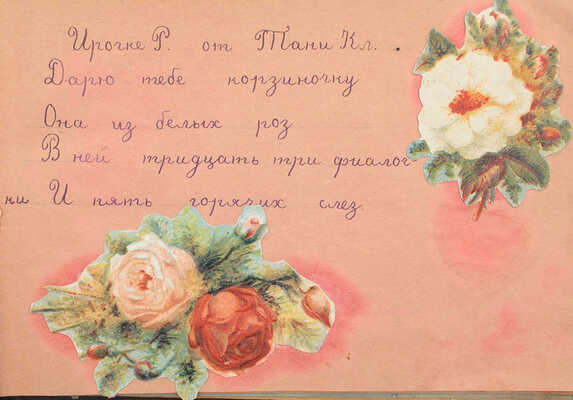 Ирочке Р. от Тани Кл.
Дарю тебе корзиночку
Она из белых роз
В ней тридцать три фиалоч
ки И пять горячих слез